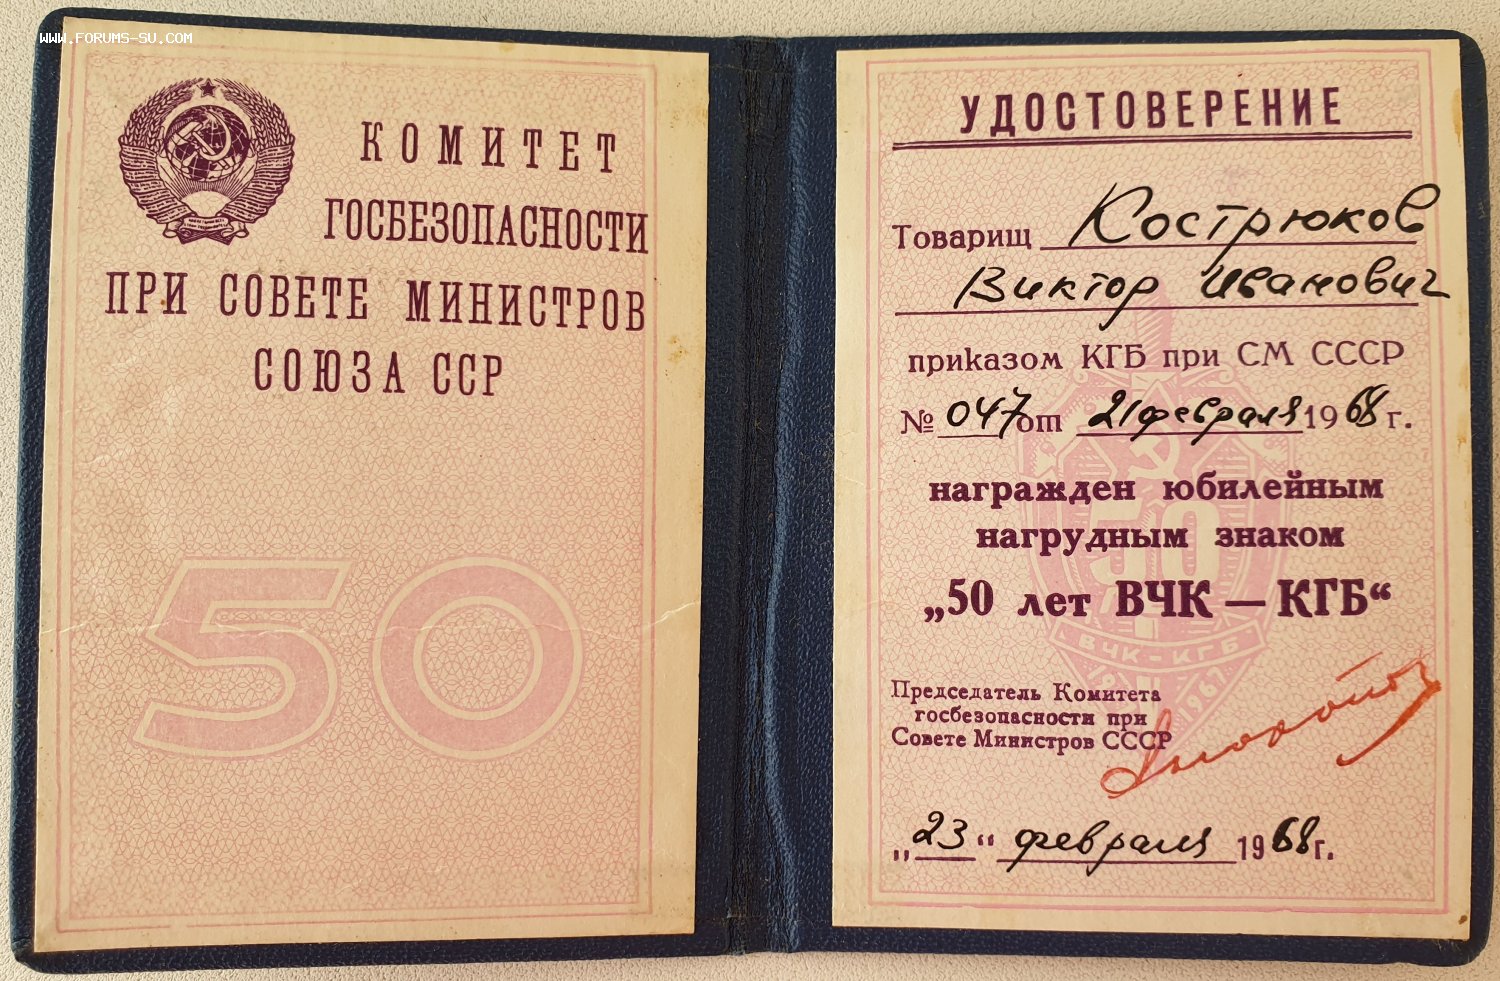 www.FORUMS-SU.COM
КОМИТЕТ
ГОСБЕЗОПАСНОСТИ
ПРИ СОВЕТЕ МИНИСТРОВ
СОЮЗА ССР
50
УДОСТОВЕРЕНИЕ
Товарищ Кострюков
Виктор Иванович
приказом КГБ при СМ СССР
№ 047 от 21 февраля 1968 г.
награжден юбилейным
нагрудным знаком
„50 лет ВЧК — КГБ“
50
ВЧК-КГБ
1967
Председатель Комитета
госбезопасности при
Совете Министров СССР
„23“ февраля 1968 г.